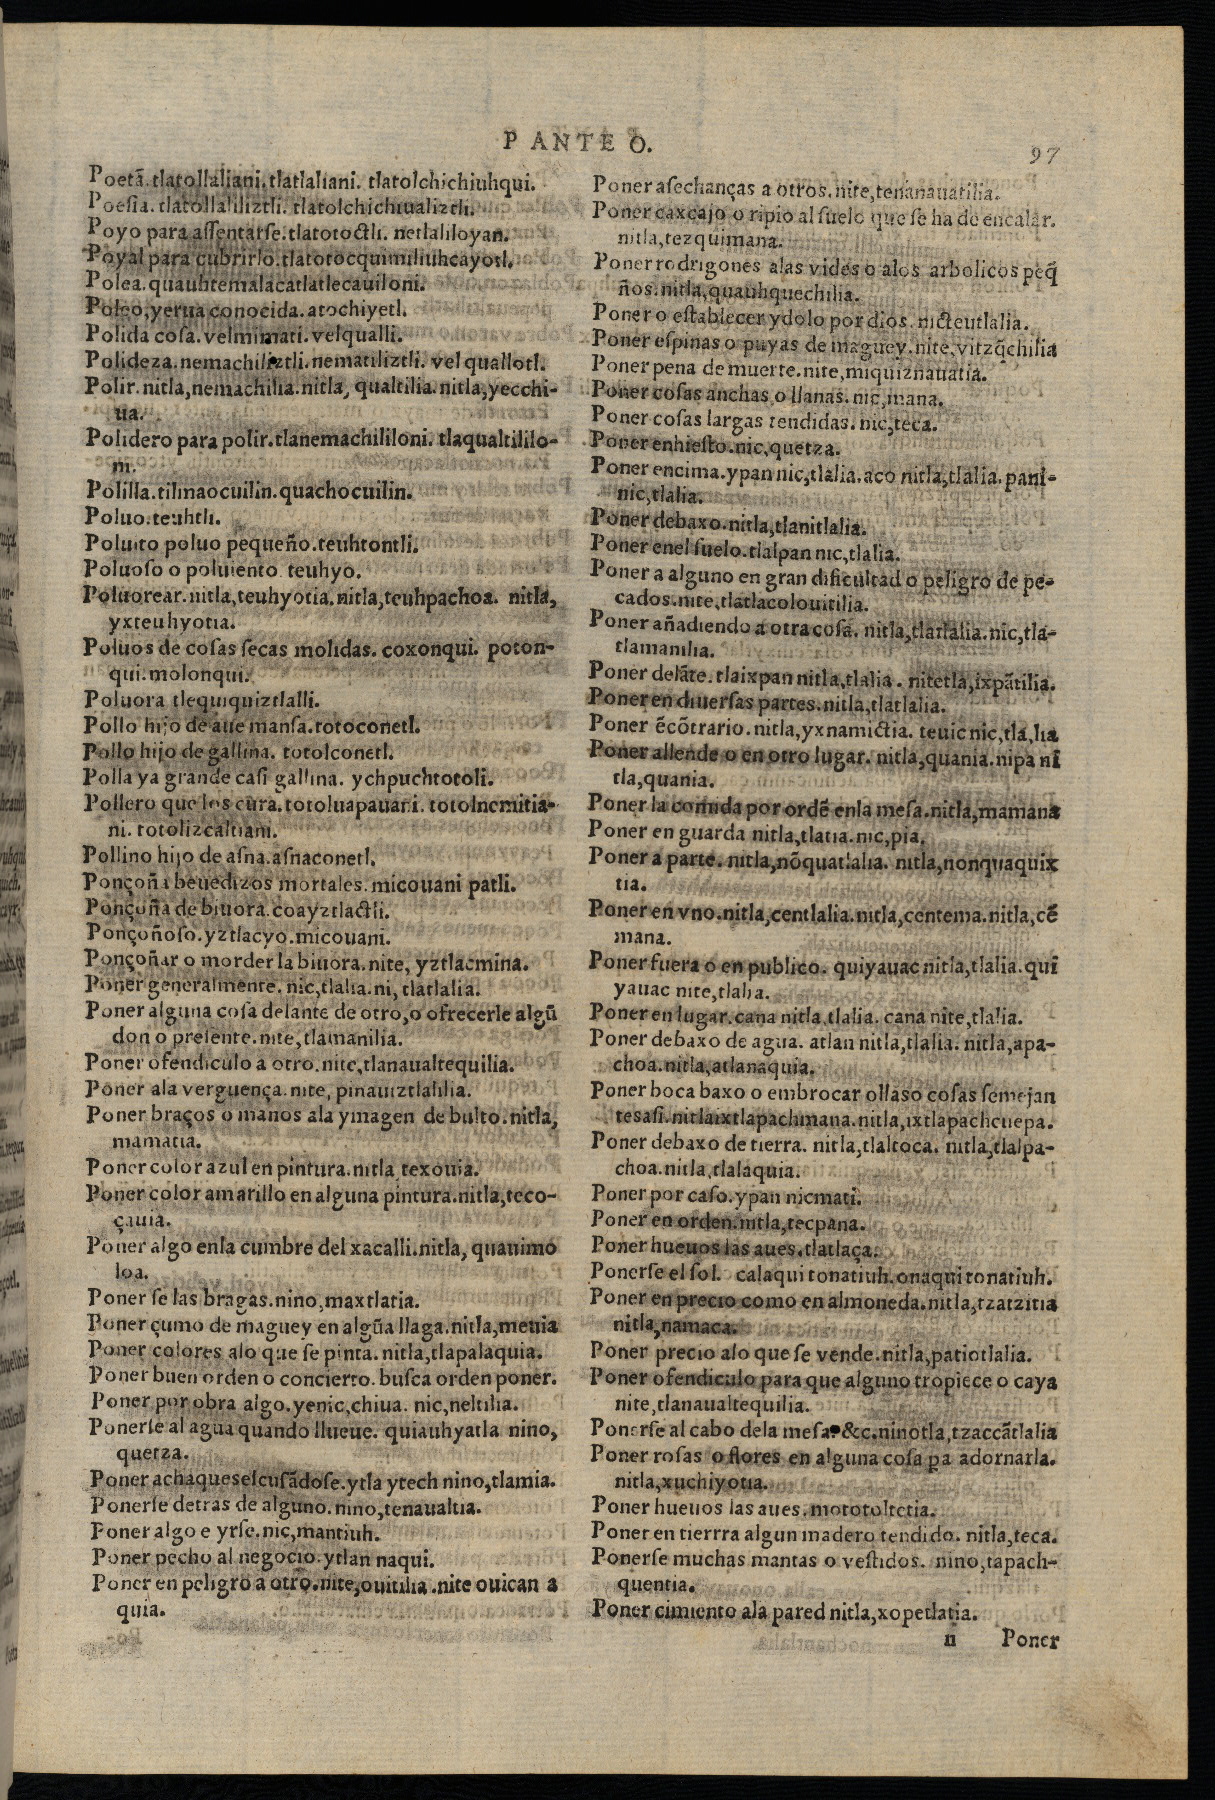 P ANTE O.
97
Poetã. tlatollaliani. tlatlaliani. tlatolchichiuhqui.
Poesia. tlatollaliliztli. tlatolchichiualiztli.
Poyo para assentarse. tlatotoctli. netlaliloyan.
Poyal para cubrirlo. tlatotocquimiliuhcayotl.
Polea. quauhtemalacatlatlecauiloni.
Poleo, yerua conocida. atochiyetl.
Polida cosa. velmimati. velqualli.
Polideza. nemachiliztli. nematiliztli. vel quallotl.
Polir. nitla, nemachilia. nitla, qualtilia. nitla, yecchi-
ua.
Polidero para polir. tlanemachililoni. tlaqualtililo-
ni.
Polilla. tilmaocuilin. quachocuilin.
Poluo. teuhtli.
Poluito poluo pequeño. teuhtontli.
Poluoso o poluiento. teuhyo.
Poluorear. nitla, teuhyotia. nitla, teuhpachoa. nitla,
yxteuhyotia.
Poluos de cosas secas molidas. coxonqui. poton-
qui. molonqui.
Poluora tlequiquiztlalli.
Pollo hijo de aue mansa. totoconetl.
Pollo hijo de gallina. totolconetl.
Polla ya grande casi gallina. ychpuchtotoli.
Pollero que los cura. totoluapauani. totolnemitia-
ni. totolizcaltiani.
Pollino hijo de asna. asnaconetl.
Ponçoña beuedizos mortales. micouani patli.
Ponçoña de biuora. coayztlactli.
Ponçoñoso. yztlacyo. micouani.
Ponçoñar o morder la biuora. nite, yztlacmina.
Poner generalmente. nic, tlalia. ni, tlatlalia.
Poner alguna cosa delante de otro, o ofrecerle algũ
don o presente. nite, tlamanilia.
Poner ofendiculo a otro. nite, tlanaualtequilia.
Poner ala verguença. nite, pinauiztlalilia.
Poner braços o manos ala ymagen de bulto. nitla,
mamatia.
Poner color azul en pintura. nitla texouia.
Poner color amarillo en alguna pintura. nitla, teco-
çauia.
Poner algo enla cumbre del xacalli. nitla, quauimo
loa.
Poner se las bragas. nino, maxtlatia.
Poner çumo de maguey en algũa llaga. nitla, meuia
Poner colores alo que se pinta. nitla, tlapalaquia.
Poner buen orden o concierto. busca orden poner.
Poner por obra algo. yenic, chiua. nic, neltilia.
Ponerse al agua quando llueue. quiauhyatla nino,
quetza.
Poner achaques escusãdose. ytla ytech nino, tlamia.
Ponerse detras de alguno. nino, tenaualtia.
Poner algo e yrse. nic, mantiuh.
Poner pecho al negocio. ytlan naqui.
Poner en peligro a otro. nite, ouitilia. nite ouican a
quia.
Poner asechanças a otros. nite, tenanauatilia.
Poner caxcajo o ripio al suelo que se ha de encalar.
nitla, tezquimana.
Poner rodrigones alas vides o alos arbolicos peq̃
ños. nitla, quauhquechilia.
Poner o establecer ydolo por dios. nicteutlalia.
Poner espinas o puyas de maguey. nite, vitzq̃chilia
Poner pena de muerte. nite, miquiznauatia.
Poner cosas anchas o llanas. nic, mana.
Poner cosas largas tendidas. nic, teca.
Poner enhiesto. nic, quetza.
Poner encima. ypan nic, tlalia. aco nitla, tlalia. pani-
nic, tlalia.
Poner debaxo. nitla, tlanitlalia.
Poner enel suelo. tlalpan nic, tlalia.
Poner a alguno en gran dificultad o peligro de pe-
cados. nite, tlatlacolouitilia.
Poner añadiendo a otra cosa. nitla, tlatlalia. nic, tla-
tlamanilia.
Poner delãte. tlaixpan nitla, tlalia. nitetla, ixpãtilia.
Poner en diuersas partes. nitla, tlatlalia.
Poner ẽcõtrario. nitla, yxnamictia. teuic nic, tla, lia
Poner allende o en otro lugar. nitla, quania. nipa ni
tla, quania.
Poner la comida por ordẽ enla mesa. nitla, mamana
Poner en guarda nitla, tlatia. nic, pia.
Poner a parte. nitla, nõquatlalia. nitla, nonquaquix
tia.
Poner en vno. nitla, centlalia. nitla, centema. nitla, cẽ
mana.
Poner fuera o en publico. quiyauac nitla, tlalia. qui
yauac nite, tlalia.
Poner en lugar. cana nitla, tlalia. cana nite, tlalia.
Poner debaxo de agua. atlan nitla, tlalia. nitla, apa-
choa. nitla, atlanaquia.
Poner boca baxo o embrocar ollaso cosas semejan
tesasi. nitlaixtlapachmana. nitla, ixtlapachcuepa.
Poner debaxo de tierra. nitla, tlaltoca. nitla, tlalpa-
choa. nitla, tlalaquia.
Poner por caso. ypan nicmati.
Poner en orden. nitla, tecpana.
Poner hueuos las aues. tlatlaça.
Ponerse el sol. calaqui tonatiuh. onaqui tonatiuh.
Poner en precio como en almoneda. nitla, tzatzitia
nitla, namaca.
Poner precio alo que se vende. nitla, patiotlalia.
Poner ofendiculo para que alguno tropiece o caya
nite, tlanaualtequilia.
Ponerse al cabo dela mesa. &c. ninotla, tzaccãtlalia
Poner rosas o flores en alguna cosa pa adornarla.
nitla, xuchiyotia.
Poner hueuos las aues. mototoltetia.
Poner en tierrra algun madero tendido. nitla, teca.
Ponerse muchas mantas o vestidos. nino, tapach-
quentia.
Poner cimiento ala pared nitla, xopetlatia.
n Poner